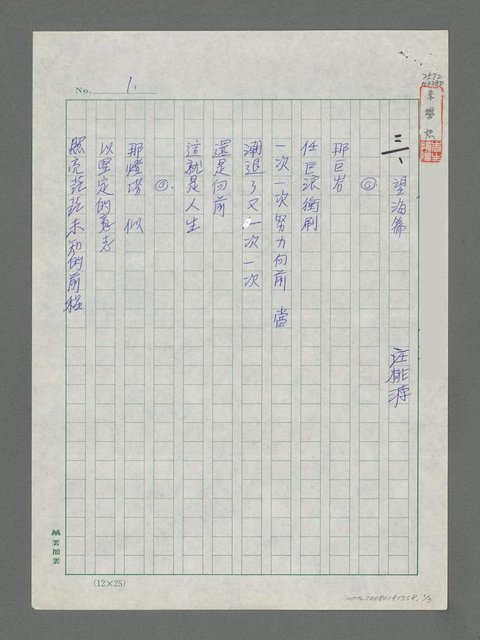 No. 1.
2572
朱學恕
三、望海篇 汪桃源
①
那巨岩
任巨浪衝刷
一次一次努力向前 當
潮退了又一次一次
還是向前
這就是人生
②.
那燈塔 似
以堅定的意志
照亮茫茫未知的前程
美加美
(12×25)
NMTL20080181758, 1/3